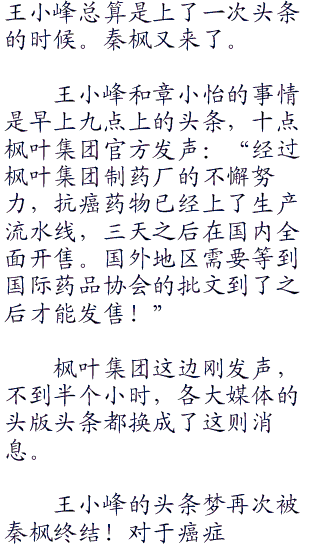 王小峰总算是上了一次头条
的时候。秦枫又来了。
王小峰和章小怡的事情
是早上九点上的头条，十点
枫叶集团官方发声：“经过
枫叶集团制药厂的不懈努
力，抗癌药物已经上了生产
流水线，三天之后在国内全
面开售。国外地区需要等到
国际药品协会的批文到了之
后才能发售！”
枫叶集团这边刚发声，
不到半个小时，各大媒体的
头版头条都换成了这则消
息。
王小峰的头条梦再次被
秦枫终结！对于癌症